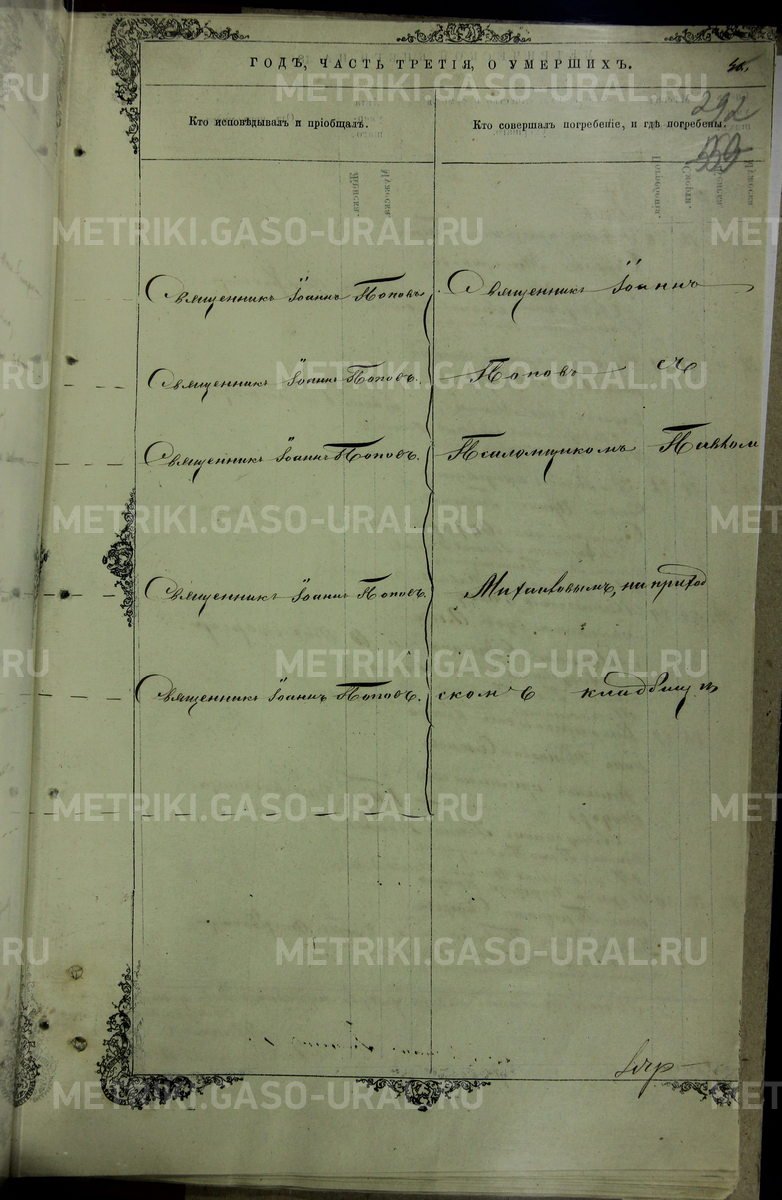 ГОДЪ, ЧАСТЬ ТРЕТІЯ, О УМЕРШИХЪ.
292
Кто исповѣдывалъ и пріобщалъ.
Кто совершалъ погребеніе, и гдѣ погребены.
Священникъ Іоаннъ Поповъ
Священникъ Іоаннъ
Священникъ Іоаннъ Поповъ.
Поповъ съ
Священникъ Іоаннъ Поповъ.
Псаломщикомъ Павлом
Священникъ Іоаннъ Поповъ.
на приход
Священникъ Іоаннъ Поповъ.
скомъ кладбищѣ
METRIKI.GASO-URAL.RU